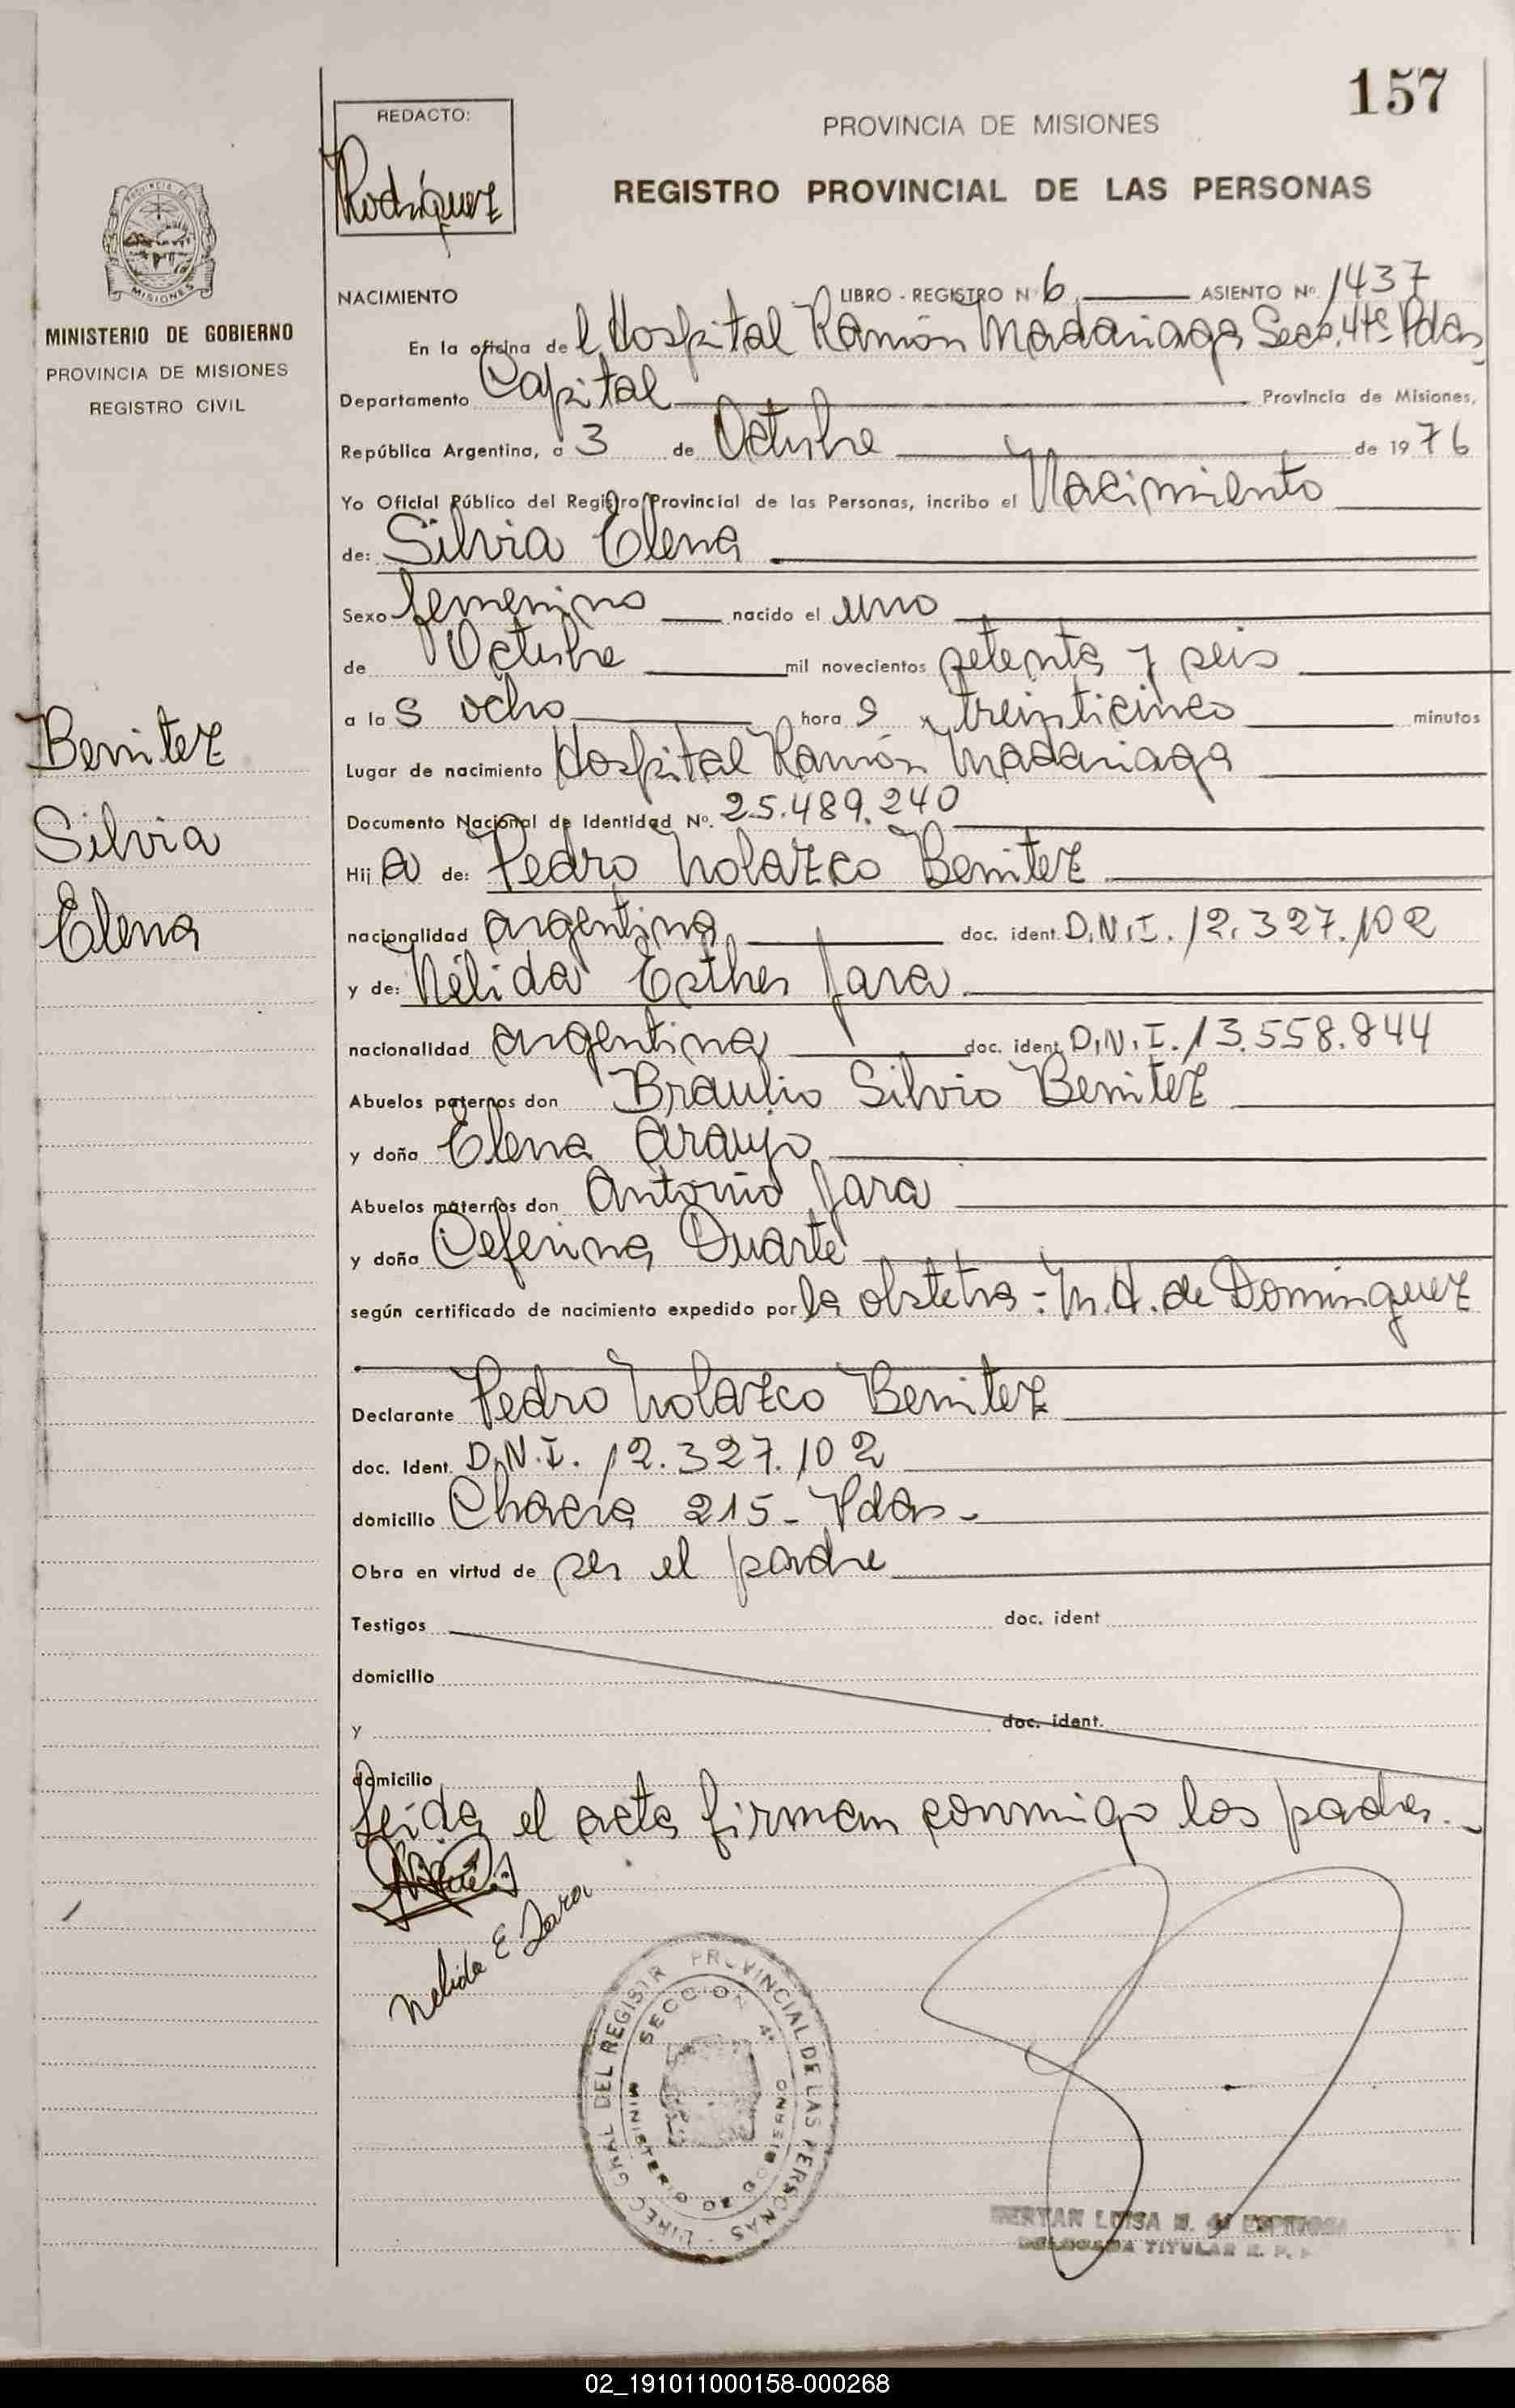 157
REDACTO:
Rodríguez
PROVINCIA DE MISIONES
REGISTRO PROVINCIAL DE LAS PERSONAS
MISIONES
MINISTERIO DE GOBIERNO
PROVINCIA DE MISIONES
REGISTRO CIVIL
NACIMIENTO LIBRO - REGISTRO Nº 6 ASIENTO Nº 1437
En la oficina del Hospital Ramón Madariaga Secc. 4ta Pdas
Departamento Capital Provincia de Misiones,
República Argentina, a 3 de Octubre de 1976
Yo Oficial Público del Registro Provincial de las Personas, incribo el Nacimiento
de: Silvia Elena
Sexo femenino nacido el uno
de Octubre mil novecientos setenta y seis
a las ocho horas y treinticinco minutos
Lugar de nacimiento Hospital Ramón Madariaga
Documento Nacional de Identidad Nº. 25.489.240
Hija de: Pedro Nolazco Benitez
nacionalidad argentina doc. ident. D.N.I. 12.327.102
y de: Nélida Esther Jara
nacionalidad argentina doc. ident. D.N.I. 13.558.844
Abuelos paternos don Braulio Silvio Benitez
y doña Elena Araujo
Abuelos maternos don Antonio Jara
y doña Ceferina Duarte
según certificado de nacimiento expedido por la obstetra: M.H. de Dominguez
Declarante Pedro Nolazco Benitez
doc. Ident. D.N.I. 12.327.102
domicilio Chacra 215 - Pdas -
Obra en virtud de ser el padre
Testigos doc. ident
domicilio
y doc. ident.
domicilio
Leida el acta firman conmigo los padres.-
Benitez
Silvia
Elena
Nelida E Jara
DIREC. GRAL DEL REGISTR PROVINCIAL DE LAS PERSONAS
SECCION 4ª
MINISTERIO DE GOBIERNO
LUISA N. de ESPINOSA
DELEGADA TITULAR R. P.
02_191011000158-000268